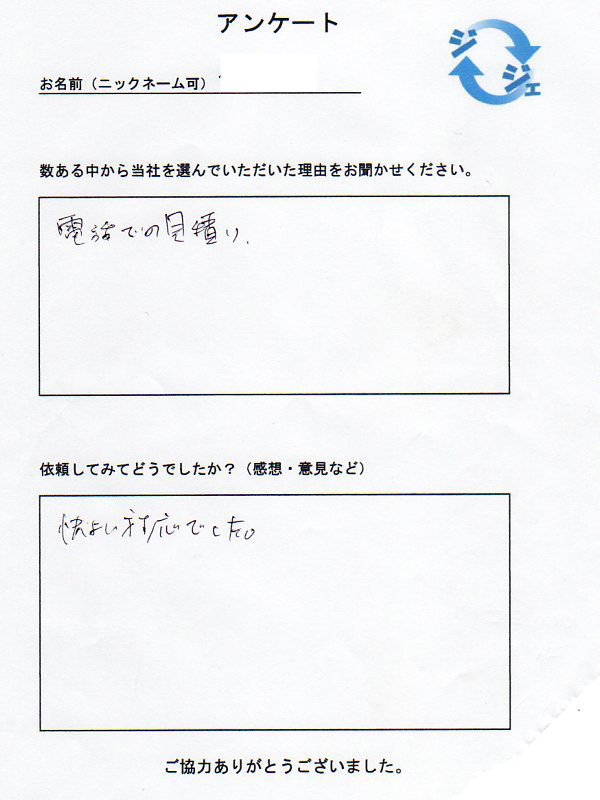 アンケート
ジジェ
お名前（ニックネーム可）
数ある中から当社を選んでいただいた理由をお聞かせください。
電話での見積り.
依頼してみてどうでしたか？（感想・意見など）
快よい対応でした。
ご協力ありがとうございました。